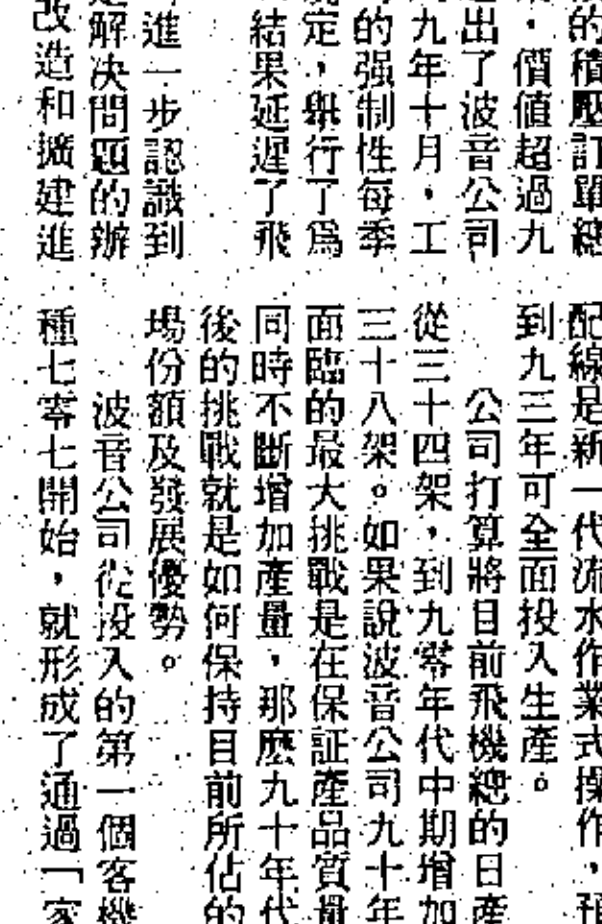 的積壓訂單總
，價值超過九
出了波音公司
九年十月，工
的强制性每季
定，舉行了爲
結果延遲了飛
進一步認識到
解决問題的辦
改造和擴建進
配線是新一代流水作業式操作，預
到九三年可全面投入生產。
公司打算將目前飛機總的日產
從三十四架，到九零年代中期增加
三十八架。如果說波音公司九十年
面臨的最大挑戰是在保証產品質量
同時不斷增加產量，那麽九十年代
後的挑戰就是如何保持目前所佔的
場份額及發展優勢。
波音公司從投入的第一個客機
種七零七開始，就形成了通過「家